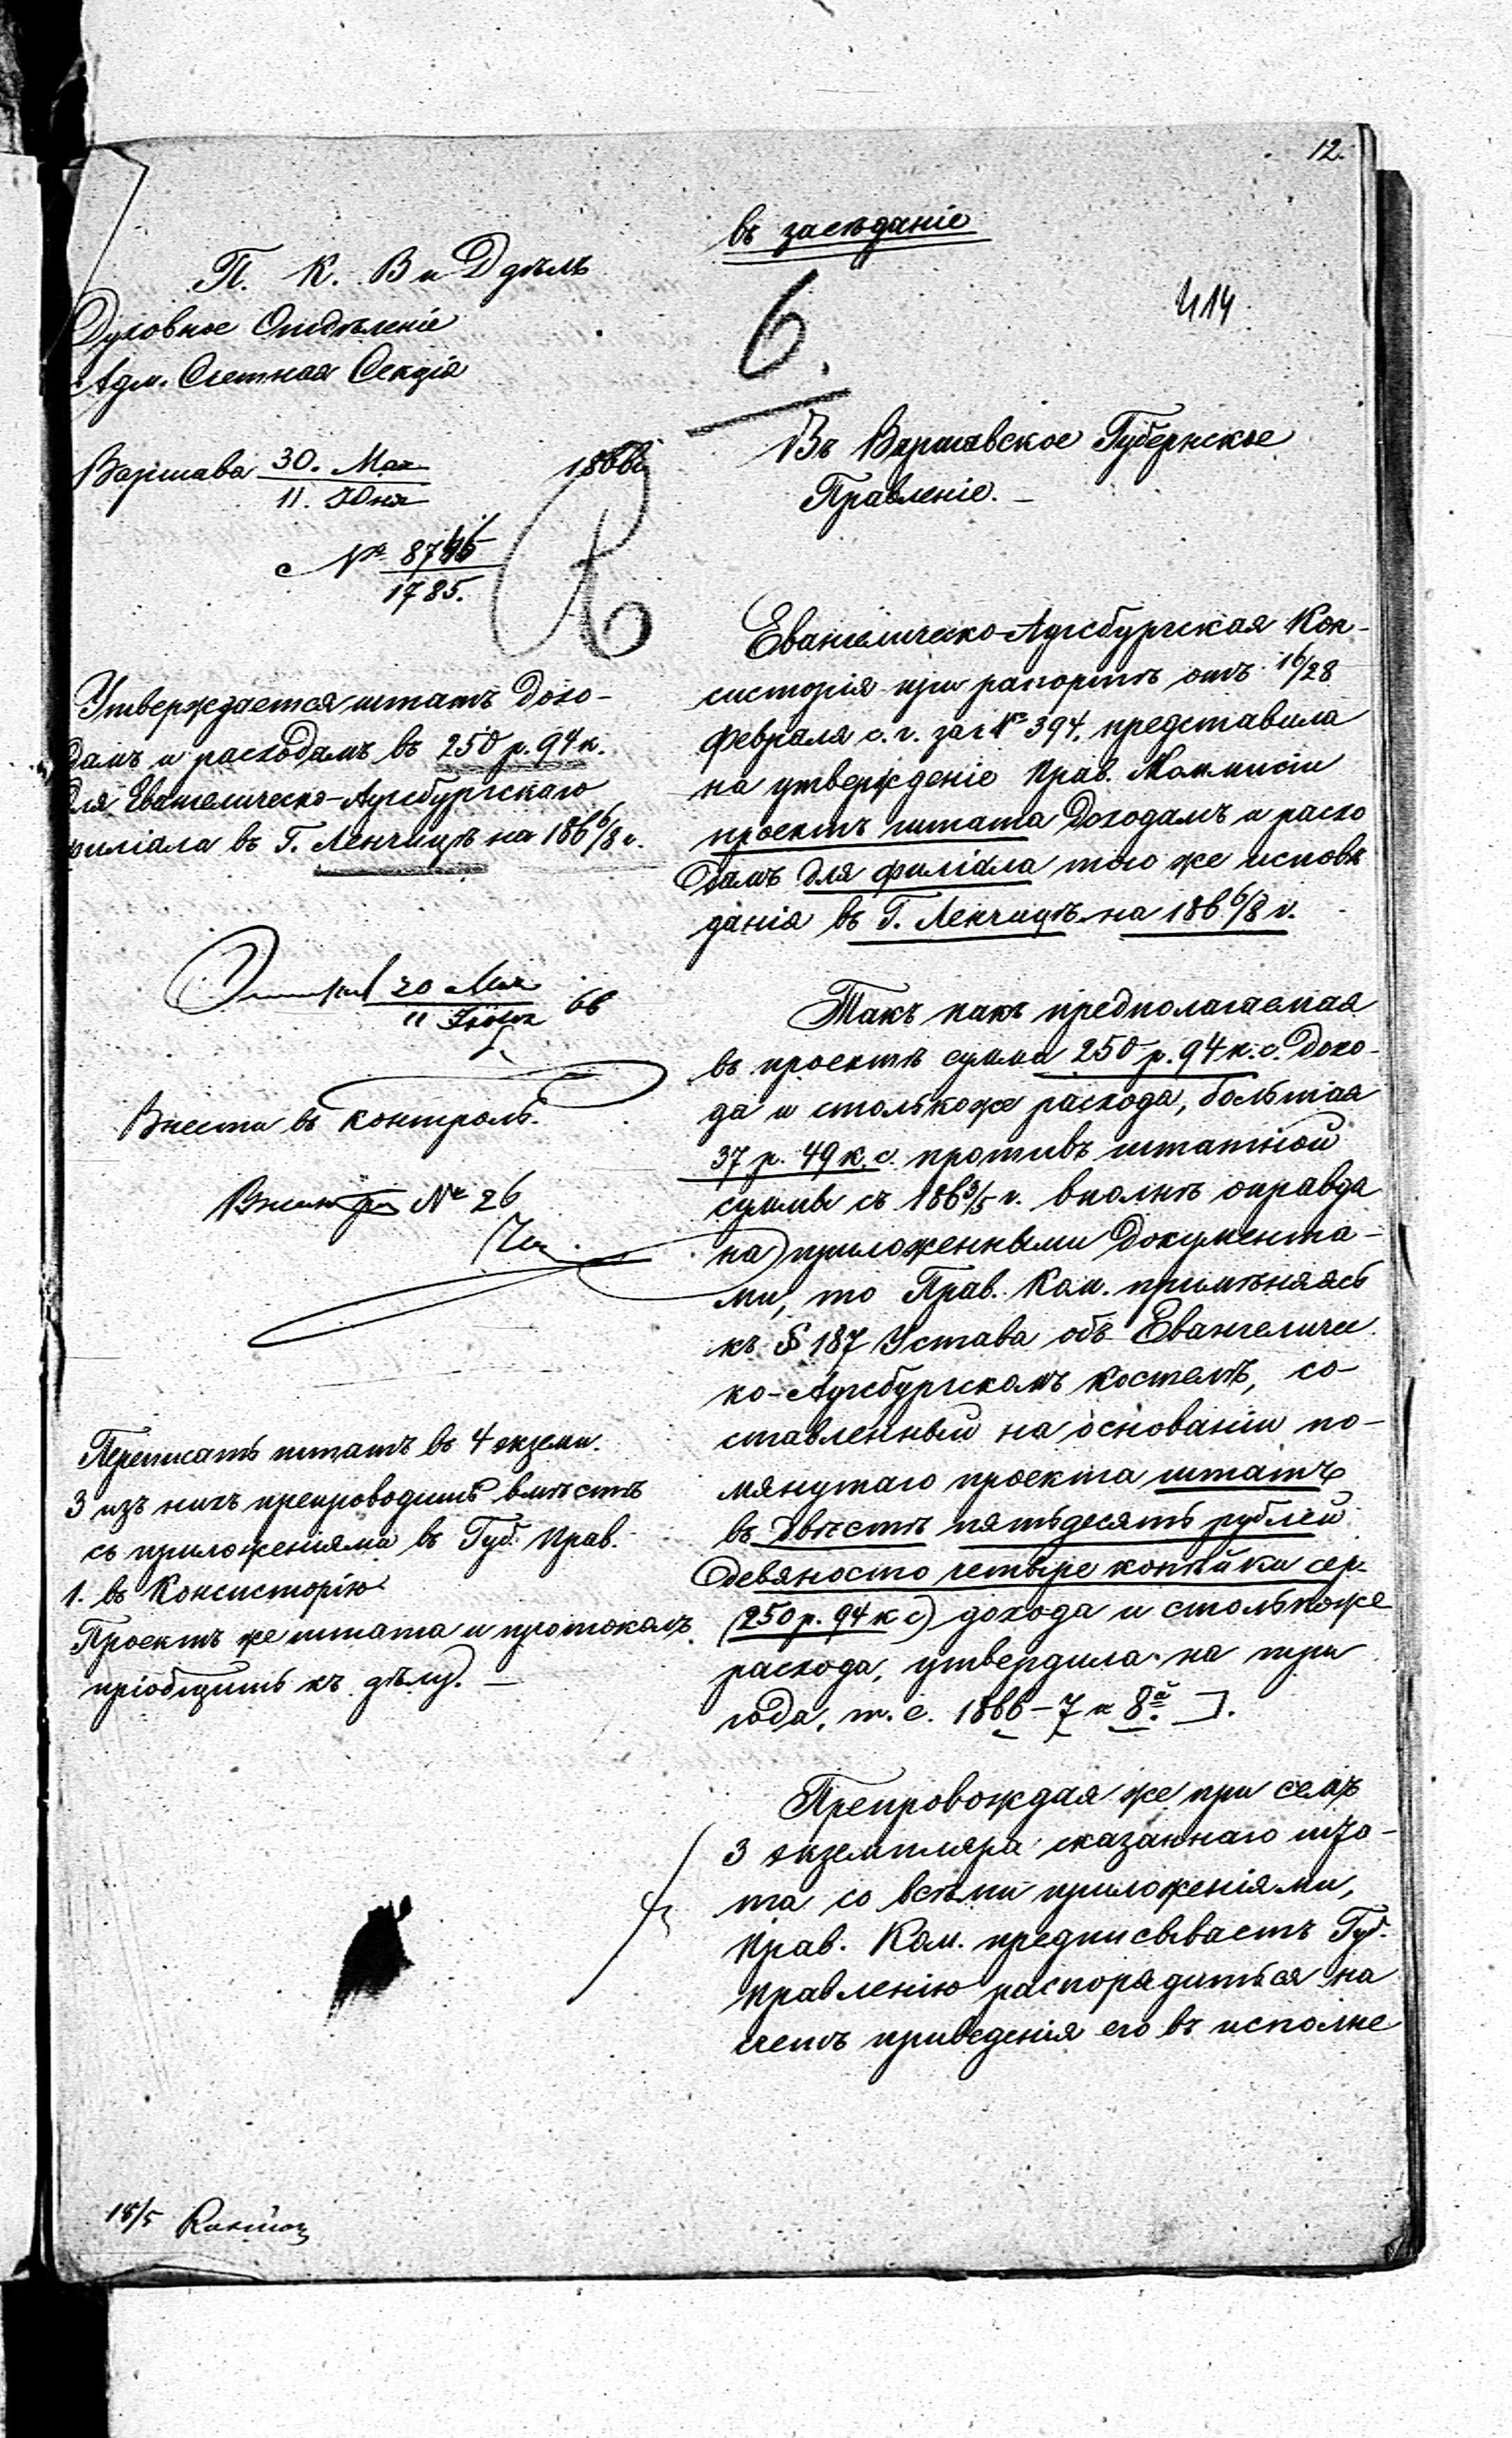 12.
въ засѣданіе
П. К. В и Д дѣлъ
Духовное Отдѣленіе
Адм. Счетная Секція
6.
414
Варшава 30. Мая 1866 г.
11. Юня
№ 8746
1785.
Въ Варшавское Губернское
Правленіе. —
Утверждается штатъ дохо-
дамъ и расходамъ въ 250 р. 94 к.
для Евангелическо-Аугсбургскаго
филіала въ Г. Ленчицѣ на 186 6/8 г.
20 Мая 66
11 Іюня
Внести въ контроль.
№ 26
Переписать штатъ въ 4 экземп.
3 изъ нихъ препроводить вмѣстѣ
съ приложеніями въ Губ. Прав.
1. въ Консисторію
Проектъ же штата и протоколъ
пріобщить къ дѣлу. —
Евангелическо-Аугсбургская Кон-
систорія при рапортѣ отъ 16/28
Февраля с. г. за № 394. представила
на утвержденіе Прав. Коммисіи
проектъ штата доходамъ и расхо
дамъ для филіала того же исповѣ
данія въ Г. Ленчицѣ на 186 6/8 г.
Такъ какъ предполагаемая
въ проектѣ сумма 250 р. 94 к. с. дохо-
да и столькоже расхода, большая
37 р. 49 к. с. противъ штатной
суммы съ 186 3/5 г. вполнѣ оправда
на приложенными документа-
ми, то Прав. Ком. примѣняясь
къ § 187 Устава объ Евангеличес
ко-Аугсбургскомъ костелѣ, со-
ставленный на основаніи по-
мянутаго проекта штатъ
въ двѣсти пятьдесятъ рублей
девяносто четыре копѣйки сер.
(250 р. 94 к с) дохода и столькоже
расхода, утвердила на три
года, т. е. 1866-7 и 8й.
Препровождая же при семъ
3 экземпляра сказаннаго шта-
та со всѣми приложеніями,
Прав. Ком. предписываетъ Губ.
Правленію распорядиться на
счетъ приведенія его въ исполне
18/5